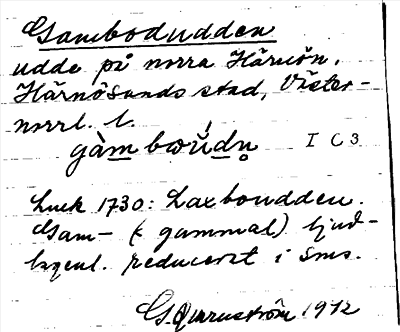 Gambodudden
udde på norra Härnön,
Härnösands stad, Väster-
norrl. l.
gàm bωŭdn̥ I C 3
Luck 1730: Laxboudden.
Gam- (< gammal) ljud-
lagenl. reducerat i sms.
1912